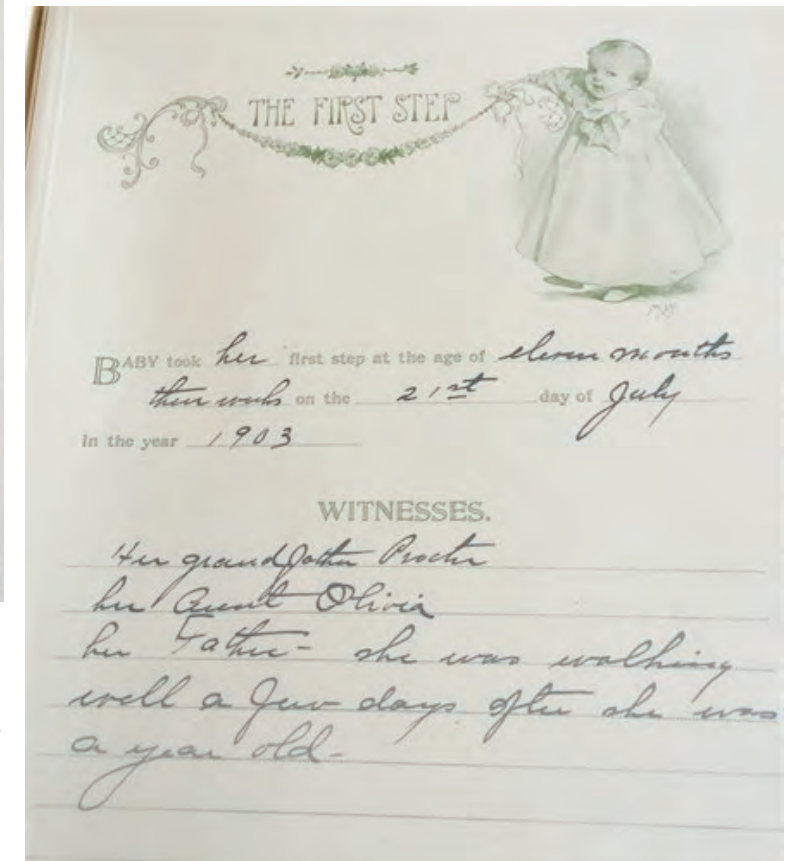 THE FIRST STEP
BABY took her first step at the age of eleven months
three weeks on the 21st day of July
in the year 1903
WITNESSES.
Her grandfather Procter
her Aunt Olivia
her Father - she was walking
well a few days after she was
a year old -